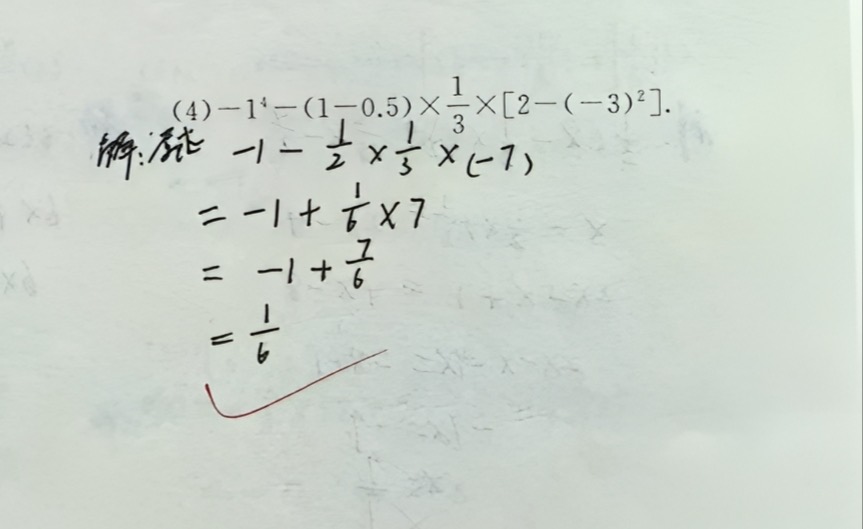 (4)-1⁴-(1-0.5)×1/3×[2-(-3)²].
解:原式 -1-1/2×1/3×(-7)
=-1+1/6×7
=-1+7/6
=1/6